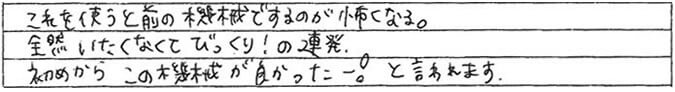 これを使うと前の機械でするのが怖くなる。
全然いたくなくてびっくり!の連発.
初めからこの機械が良かったー!。と言われます.